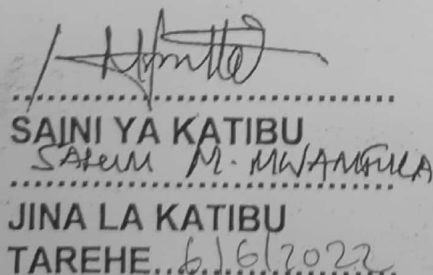 SAINI YA KATIBU
SALUM M. MWAMFULA
JINA LA KATIBU
TAREHE...6/6/2022